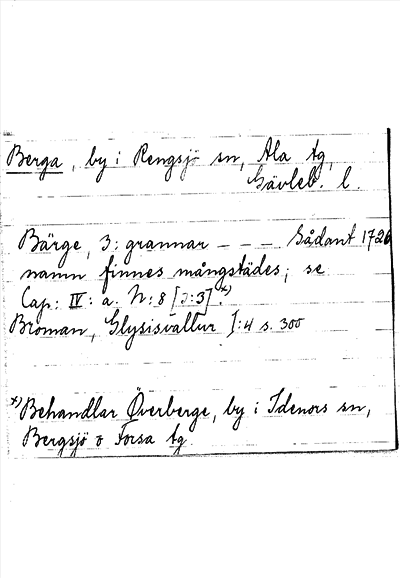 Berga, by i Rengsjö sn, Ala tg,
Gävleb. l.
Bärge, 3: grannar - - - Sådant 1726
namn finnes mångstädes; se
Cap: IV: a. N: 8 [I:3].*)
Broman, Glysisvallur I:4 s. 300
*) Behandlar Överberge, by i Idenors sn,
Bergsjö o Forsa tg.